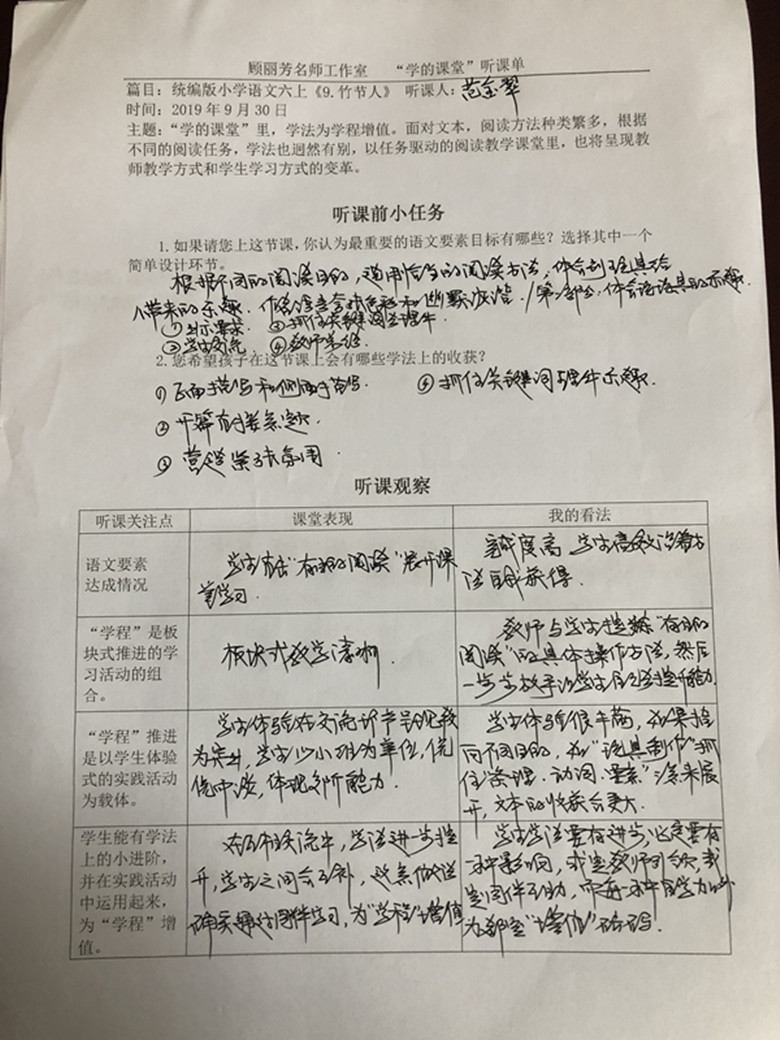 顾丽芳名师工作室 “学的课堂”听课单
篇目：统编版小学语文六上《9.竹节人》 听课人：范金翠
时间：2019年9月30日
主题：“学的课堂”里，学法为学程增值。面对文本，阅读方法种类繁多，根据
不同的阅读任务，学法也迥然有别，以任务驱动的阅读教学课堂里，也将呈现教
师教学方式和学生学习方式的变革。
听课前小任务
1.如果请您上这节课，你认为最重要的语文要素目标有哪些？选择其中一个
简单设计环节。
根据不同的阅读目的，选用恰当的阅读方法，体会到玩具给
人带来的乐趣。
①出示要求 ②抓住关键词圈画理件
③学生交流 ④教师总结
2.您希望孩子在这节课上会有哪些学法上的收获？
①正面描写和侧面描写. ④抓住关键词
②开篇
③营造紧张氛围
听课观察
听课关注点 课堂表现 我的看法
语文要素
达成情况
学生有“有目的阅读”展开课
堂学习.
完成度高 学生
法 获得.
“学程”是板
块式推进的学
习活动的组
合。
板块式教学清晰.
教师与学生提炼“有目的
阅读”的具体操作方法，然后
一步步放手让学生自己提升能力.
“学程”推进
是以学生体验
式的实践活动
为载体。
学生体验在交流环节呈现较
为突出，学生以小组为单位，侃
侃而谈，体现分析能力.
学生体验很丰满，如果按
同不同目的，如“玩具制作”抓
住“条理、动词、要素” 来展
开，文本的收获会更大.
学生能有学法
上的小进阶，
并在实践活动
中运用起来，
为“学程”增
值。
在互相交流中，学法进一步提
升，学生之间会互补，
确实通过同伴学习，为“学程”增值
学生学法要有进步，必定要有
一种影响，或是教师引领，或
是同伴互助，
为都是“增值”